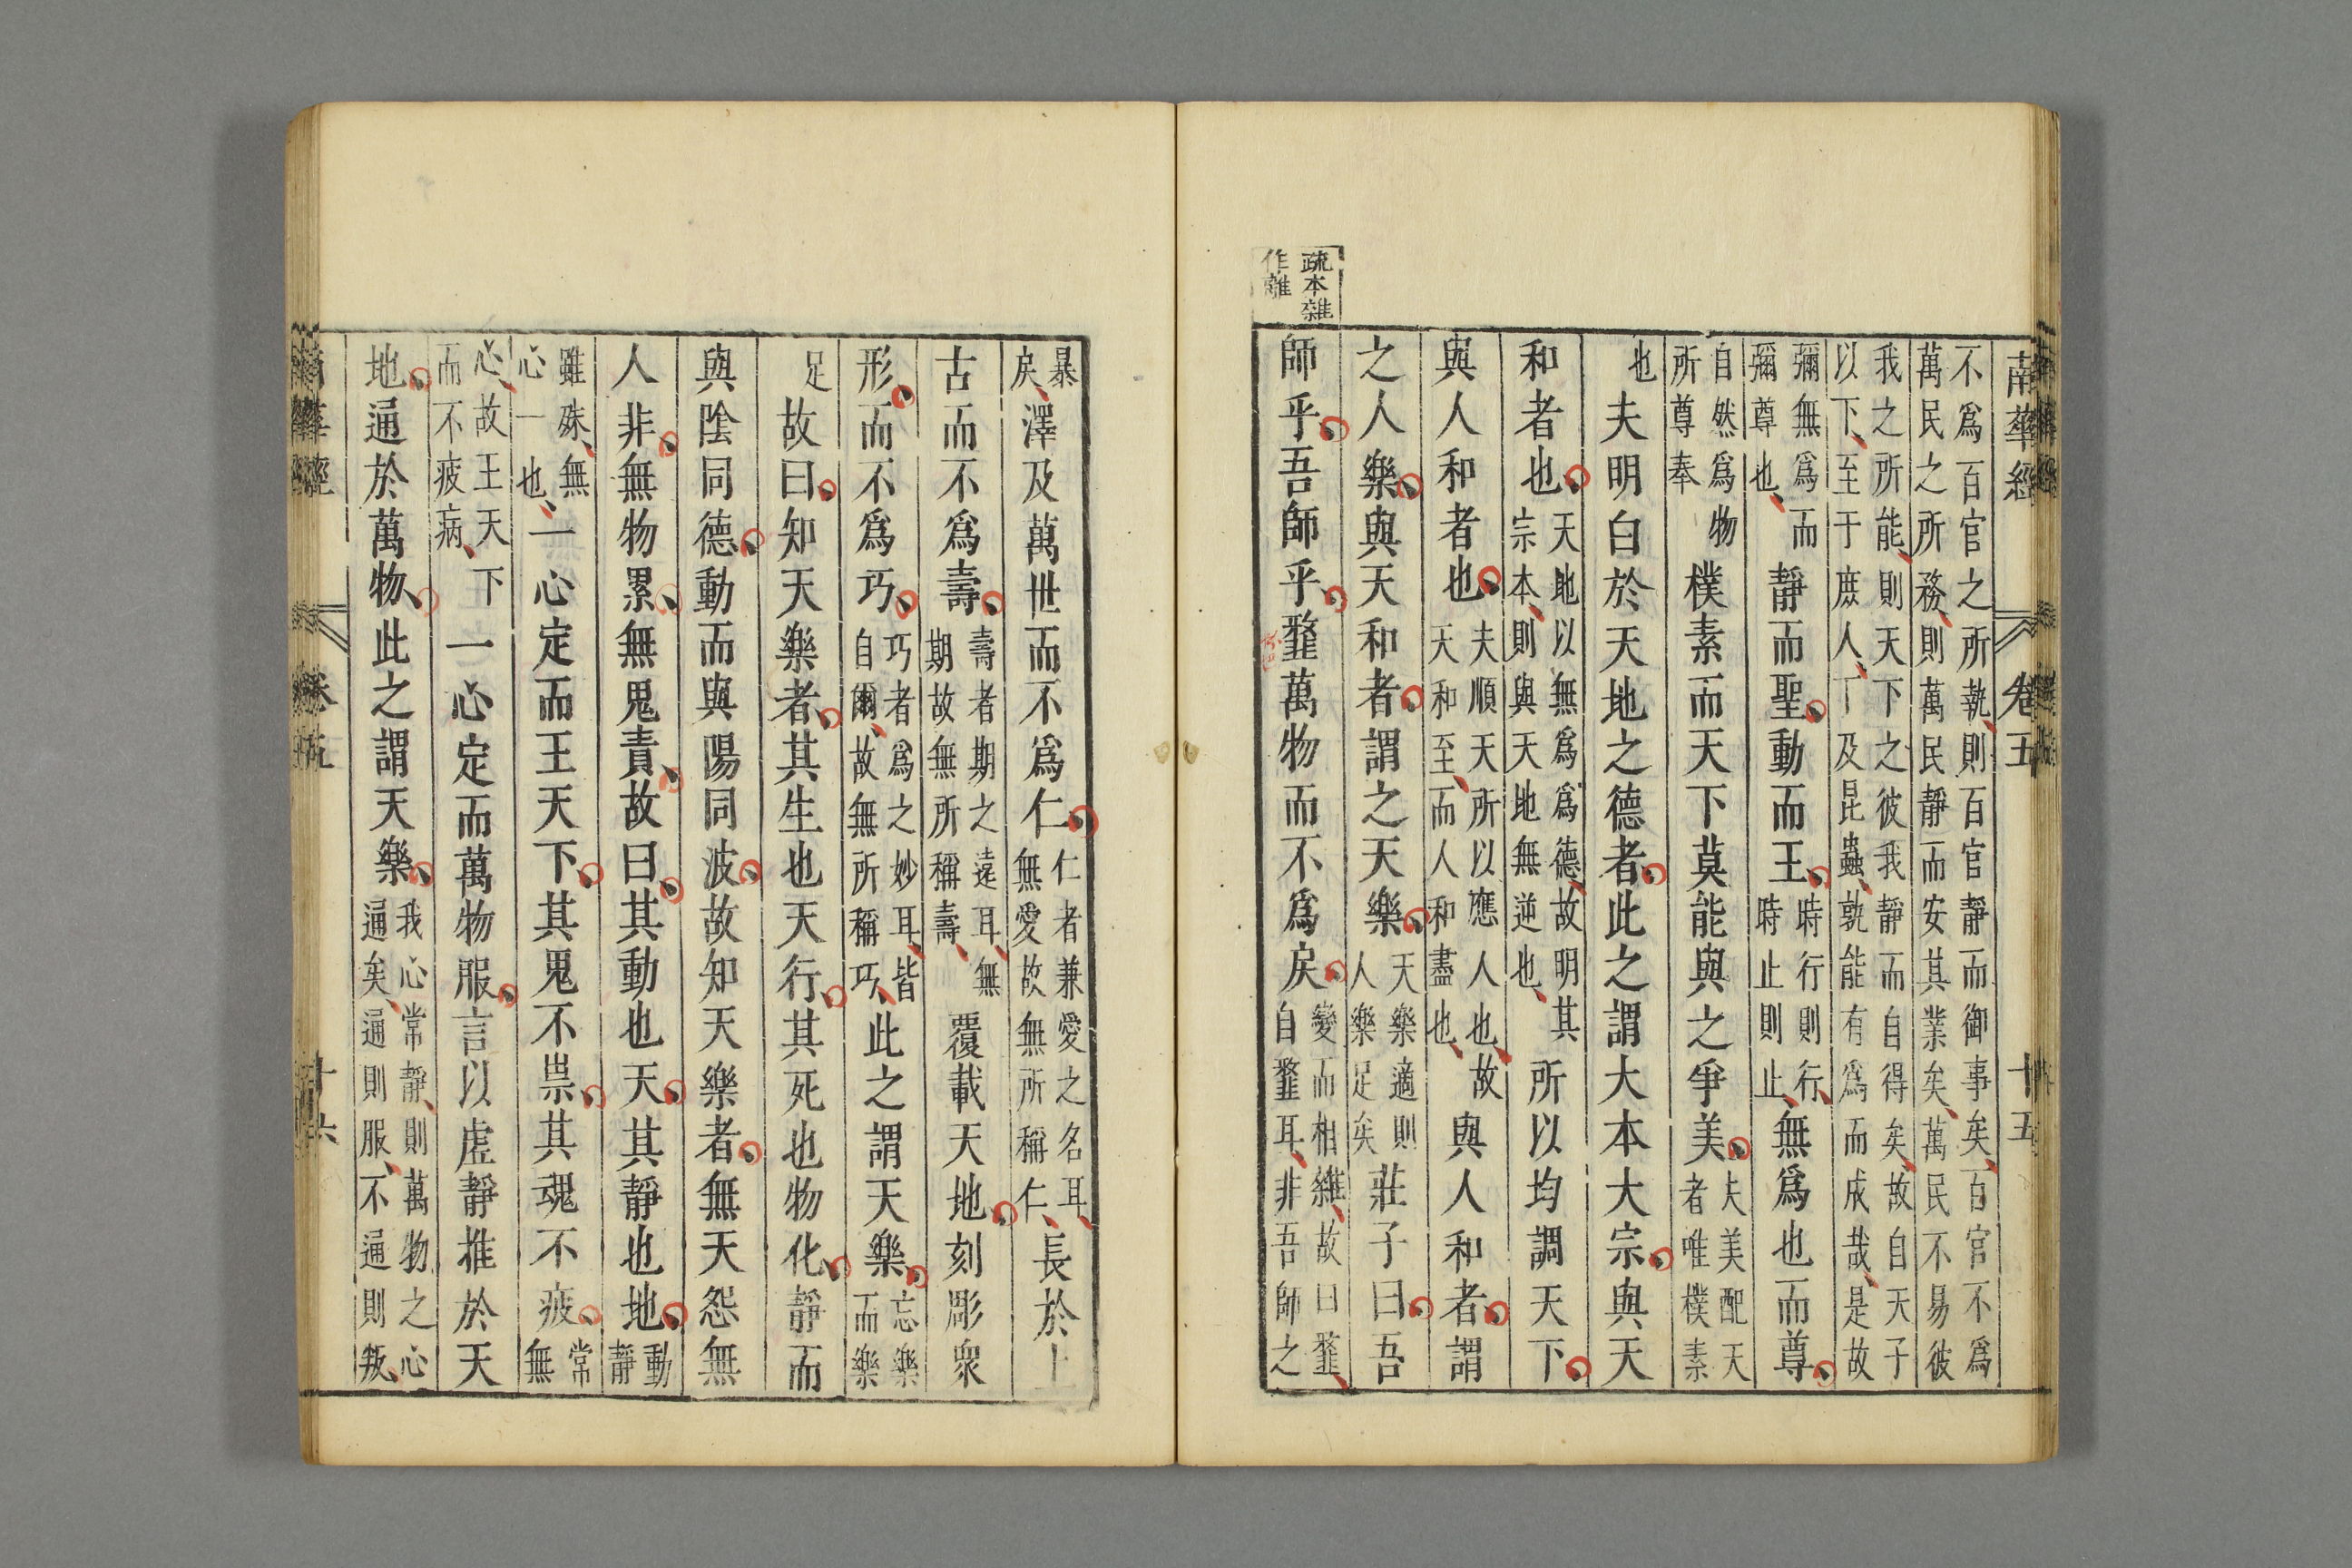 南華經 卷五 十五
不爲百官之所執、則百官靜而御事矣、百官不爲
萬民之所務、則萬民靜而安其業矣、萬民不易彼
我之所能、則天下之彼我靜而自得矣、故自天子
以下、至于庶人、下及昆蟲、孰能有爲而成哉、是故
彌無爲而
彌尊也、
靜而聖。動而王。
時行則行、
時止則止、
無爲也而尊。
自然爲物
所尊奉
樸素而天下莫能與之爭美。
夫美配天
者唯樸素
也
夫明白於天地之德者。此之謂大本大宗。與天
和者也。
天地以無爲爲德、故明其
宗本、則與天地無逆也、
所以均調天下。
與人和者也。
夫順天所以應人也、故
天和至、而人和盡也、
與人和者。謂
之人樂。與天和者。謂之天樂。
天樂適則
人樂足矣
莊子曰。吾
疏本雜
作離
師乎。吾師乎。𩐋萬物而不爲戾。
變而相雜、故曰𩐋、
自𩐋耳、非吾師之
暴
戾、
澤及萬世而不爲仁。
仁者兼愛之名耳、
無愛故無所稱仁、
長於上
古而不爲壽。
壽者期之遠耳、無
期故無所稱壽、
覆載天地。刻彫衆
形。而不爲巧。
巧者爲之妙耳、皆
自爾、故無所稱巧、
此之謂天樂。
忘樂
而樂
足
故曰。知天樂者。其生也天行。其死也物化。靜而
與陰同德。動而與陽同波。故知天樂者。無天怨無
人非。無物累。無鬼責。故曰。其動也天。其靜也地。
動
靜
雖殊、無
心一也、
一心定而王天下。其鬼不祟。其魂不疲。
常
無
心、故王天下
而不疲病、
一心定而萬物服。言以虛靜推於天
地。通於萬物。此之謂天樂。
我心常靜、則萬物之心
通矣、通則服、不通則叛、
南華經 卷五 十六